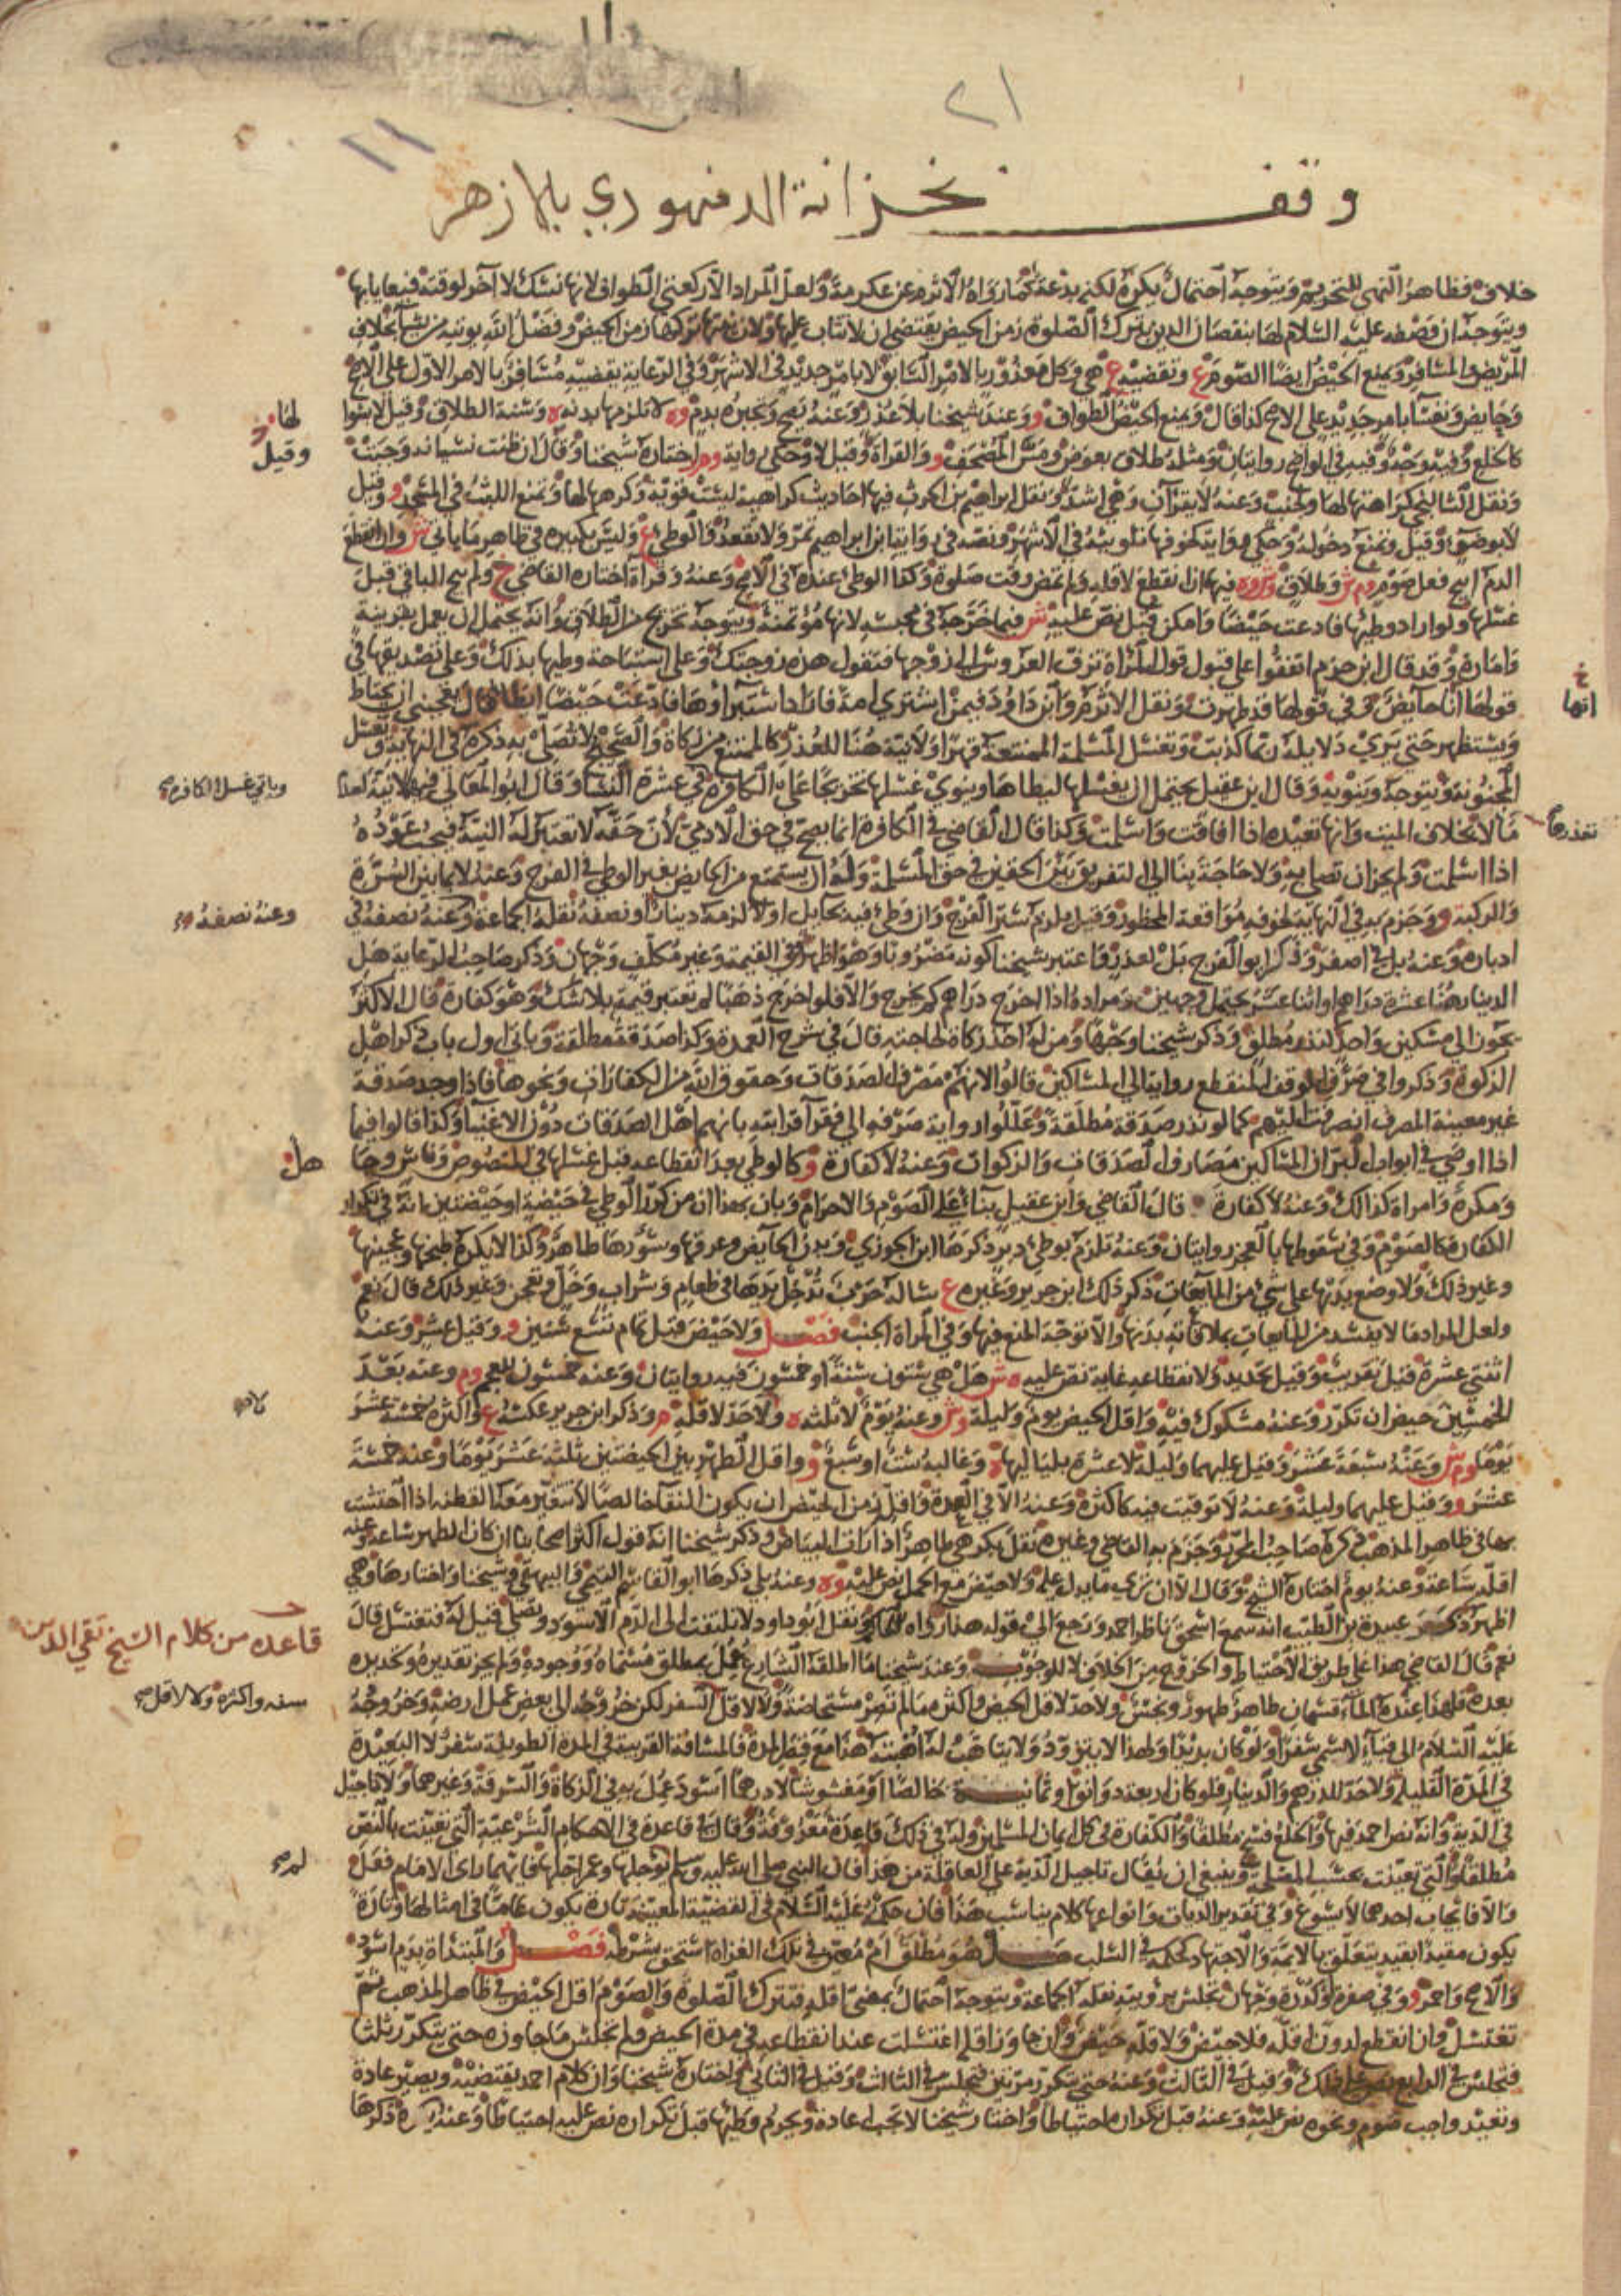 ٢١
١١
وقف بخزانة الدمنهوري بالازهر
خلاف فظاهر النهي للتحريم ويتوجه احتمال يكره لكنه بدعة كما رواه الاثرم عن عكرمة ولعل المراد الا ركعتي الطواف لانها نسك لا آخر لوقته فيعايا بها
ويتوجه ان وصفه عليه السلام لها بنقصان الدين بترك الصلوة زمن الحيض يقتضي ان لا تثاب عليها ولان نيتها تركها زمن الحيض وفضل الله يوتيه من يشآ بخلاف
المريض والمسافر ويمنع الحيض ايضا الصوم ع وتقضيه ع هي وكل معذور بالامر السابق لا بامر جديد في الاشهر وفي الرعاية يقضيه مسافر بالامر الاول على الاصح
وحايض ونفسآ بامر جديد على الاصح كذا قال ويمنع الحيض الطواف و وعند شيخنا بلا عذر وعنه يصح وتجبره بدم وه لا تلزمها بدنه ه وسنة الطلاق وقيل لا بسوا
لها
كالخلع وفيه وجه وفيه في الواضح روايتان ومثله طلاق بعوض ومس المصحف و والقراة وقيل لا وحكي رواية وم واختاره شيخنا وقال ان ظنت نسيانه وجبت
وقيل
ونقل الشالنجي كراهتها لها ولجنب وعنه لا يقرآن وهي اشد ونقل ابراهيم بن الحرث فيها احاديث كراهية ليست قوية وكرهها لها ويمنع اللبث في المسجد و وقيل
لا بوضوء وقيل ويمنع دخوله وحكي رواية كخوفها تلويثه في الاشهر ونصه في رواية ابن ابراهيم تمر ولا تقعد والوطئ ع وليس بكبيرة في ظاهر ما ياتي ش وان انقطع
الدم ابيح فعل صوم وم ش وطلاق وش وه فيهما ان انقطع لاقله ولم تمض وقت صلوة وكذا الوطئ عنده في الاصح وعنه وقراة اختاره القاضي خ ولم يبح الباقي قبل
غسلها ولو اراد وطيها فادعت حيضا وامكن قبل نص عليه ش فيما خرجه في محبسه لانها مؤتمنة ويتوجه تخريج من الطلاق وانه يحتمل ان يعمل بقرينة
وامارة وقد قال ابن حزم اتفقوا على قبول قول المراة تزف العروس الى زوجها فتقول هذه زوجتك وعلى استباحة وطيها بذلك وعلى تصديقها في
قولها انا حايض وفي قولها قد طهرت ونقل الاثرم وابن داود فيمن اشترى امة فاراد استبراوها فادعت حيضا انطاها قال يعجبني ان يحتاط
انها خ
ويستظهر حتى يرى دلايله ربما كذبت وتغسل المسلمة الممتنعة قهرا ولا نية هنا للعذر كالممتنع من زكاة والصحيح لا تصلي به ذكره في النهاية ويغسل
المجنونة ويتوجه وينويه وقال ابن عقيل يحتمل ان يغسلها ليطاها وينوي غسلها تخريجا على الكافرة في عشرة النسا وقال ابو المعالي فيهما لا نية لعدم
وياتي غسل الكافرة
تعذرها
مآلا بخلاف الميت وانها تعيده اذا افاقت واسلمت وكذا قال القاضي في الكافرة انما يصح في حق الادمي لان حقه لا تعتبر له النية فيجب عوده
اذا اسلمت ولم يجز ان تصلي به ولا حاجة بنا الى التفريق بين الحقين في حق المسلمة وله ان يستمتع من الحايض بغير الوطي في الفرج وعنه لا بما بين السرة
والركبة و وجزم به في النهاية لخوفه مواقعة المحظور وقيل يلزم ستر الفرج وان وطي فيه بحايل او لا لزمه دينار او نصفه نقله الجماعة وعنه نصفه في
وعنه نصفه
ادباره وعنه بل في اصفر وذكر ابو الفرج بل لعذر واعتبر شيخنا كونه مضروبا وهو اظهر وفي القيمة وغير مكلف وجهان وذكر صاحب الرعاية هل
الدينار هنا عشرة دراهم او اثنا عشر يحتمل وجهين ومراده اذا اخرج دراهم كم يخرج والا فلو اخرج ذهبا لم تعتبر قيمة بلا شك وهو كفارة قال الاكثر
يجوز الى مسكين واحد كنذر مطلق وذكر شيخنا وجها ومن له اخذ زكاة لحاجته قال في شرح العمدة وكذا صدقة مطلقة وياتي اول باب ذكر اهل
الزكوة وذكروا في صرف الوقف المنقطع رواية الى المساكين قالوا لانهم مصرف الصدقات وحقوق الله من الكفارات ونحوها فاذا وجد صدقة
غير معينة المصرف انصرفت اليهم كما لو نذر صدقة مطلقة وعللوا رواية صرفه الى فقرآ قرابته بانهم اهل الصدقات دون الاغنيآ وكذا قالوا فيما
اذا اوصى في ابواب البر ان المساكين مصارف الصدقات والزكوات وعنه لا كفارة و وكالوطي بعد انقطاعه قبل غسلها في المنصوص وناس وجا
هل
ومكره وامراة كذلك وعنه لا كفارة قال القاضي وابن عقيل بنآ على الصوم والاحرام وبان بهذا ان من كرر الوطي في حيضة او حيضتين انه في تكرار
الكفارة كالصوم وفي سقوطها بالعجز روايتان وعنه تلزم بوطئ دبر ذكرها ابن الجوزي وبدن الحايض وعرقها وسؤرها طاهر وكذا لا يكره طبخها وعجينها
وغير ذلك ولا وضع يديها على شئ من المآيعات ذكر ذلك ابن جرير وغيره ع ساله حرب تدخل يدها في طعام وشراب وخل وتعجن وغير ذلك قال نعم
ولعل المراد ما لا يفسد من المايعات بملاقاته بدنها والا توجه المنع فيها وفي المراة الجنب فصل ولا حيض قبل تمام تسع سنين و وقيل عشر وعنه
اثنتي عشرة قيل تقريب وقيل تحديد ولانقطاعه غاية نص عليه ه ش هل هي ستون سنة او خمسون فيه روايتان وعنه خمسون للعجم وم وعنه بعد
الخمسين حيض ان تكرر وعنه مشكوك فيه واقل الحيض يوم وليلة وش وعنه يوم لا ثلثه ه ولا حد لاقله م وذكر ابن جرير عكسه ع واكثره خمسة عشر
يوما وم ش وعنه سبعة عشر وقيل عليهما وليلة لا عشرة بلياليها ه وغالبه ست او سبع و واقل الطهر بين الحيضتين ثلثة عشر يوما وعنه خمسة
عشر و وقيل عليهما وليلة وعنه لا توقيت فيه كاكثره وعنه الا في العدة واقل زمن الحيض ان يكون النقا خالصا لا تتغير معه القطنة اذا احتشت
بها في ظاهر المذهب ذكره صاحب المحرر وجزم به القاضي وغيره نقل بكر هي طاهر اذا رات البياض وذكر شيخنا انه قول اكثر اصحابنا ان كان الطهر ساعة وعنه
اقله ساعة وعنه يوم اختاره الشيخ وقال الا ان ترى ما يدل عليه ولا حيض مع الحمل نص عليه وه وعنه بلى ذكرها ابو القاسم البغوي والبيهقي وشيخنا واختارها وهي
اظهر ذكر عبيدة بن الطيب انه سمع اسحق ناظر احمد ورجع الى قوله هذا رواه الحاكم ونقل ابو داود لا تلتفت الى الدم الاسود وتصلي قيل له فتغتسل قال
نعم قال القاضي هذا على طريق الاحتياط والخروج من الخلاف لا للوجوب وعند شيخنا ما اطلقه الشارع عمل بمطلق مسماه ووجوده ولم يجز تقديره وتحديده
قاعده من كلام الشيخ تقي الدين
بعده فلهذا عنده المآء قسمان طاهر طهور ونجس ولا حد لاقل الحيض واكثره ما لم تصر مستحاضة ولا لاقل السفر لكن خروجه الى بعض عمل ارضه وخروجه
سنه واكثره ولا لاقل
عليه السلام الى قبآء لا يسمى سفرا ولو كان بريدا ولهذا لا يتزود ولا يتاهب له اهبته هذا مع قصر المدة فالمسافة القريبة في المدة الطويلة سفر لا البعيدة
في المدة القليلة ولا حد للدرهم والدينار فلو كان اربعة دوانق او ثمانية خالصا او مغشوشا لا درهما اسود عمل به في الزكاة والسرقة وغيرهما ولا تاجيل
في الدية وانه نص احمد فيها والخلع فسخ مطلقا والكفارة في كل ايمان المسلمين وله في ذلك قاعدة معروفة وقال في قاعدة في الاحكام الشرعية التي تعينت بالنص
مطلقا والتي تعينت بحسب المصلحة وينبغي ان يقال تاجيل الدية على العاقلة من هذا فان النبي صلى الله عليه وسلم لم يوجلها وعمر اجلها فايهما راى الامام فعل
والا فايجاب احدهما لا يسوغ وفي تقدير الديات وانواعها كلام يناسب هذا فان حكمه عليه السلام في القضية المعينة تارة يكون عاما في امثالها وتارة
يكون مقيدا بقيد يتعلق بالايمة والاجتهاد كحكمه في السلب هل هو مطلق ام معين في تلك الغزاة استحق بشرطه فصل والمبتداة بدم اسود
والاصح واحمر و وفي صفرة او كدرة وجهان تجلس برويته نقله الجماعة ويتوجه احتمال بمضي اقله فتترك الصلوة والصوم اقل الحيض في ظاهر المذهب ثم
تغتسل وان انقطع لدون اقله فلا حيض ولاقله حيض وان جاوز اقله اغتسلت عند انقطاعه في مدة الحيض ولم تجلس ما جاوزه حتى يتكرر ثلثا
فتجلس في الرابع نص على ذلك وقيل في الثالث وعنه حتى يتكرر مرتين فتجلس في الثالث وقيل في الثاني واختاره شيخنا وان كلام احمد يقتضيه ويصير عادة
وتعيد واجب صوم ونحوه نص عليه وعنه قبل تكراره احتياطا واختار شيخنا لا تجب اعادة ويحرم وطيها قبل تكراره نص عليه احتياطا وعنه يكره ذكرها